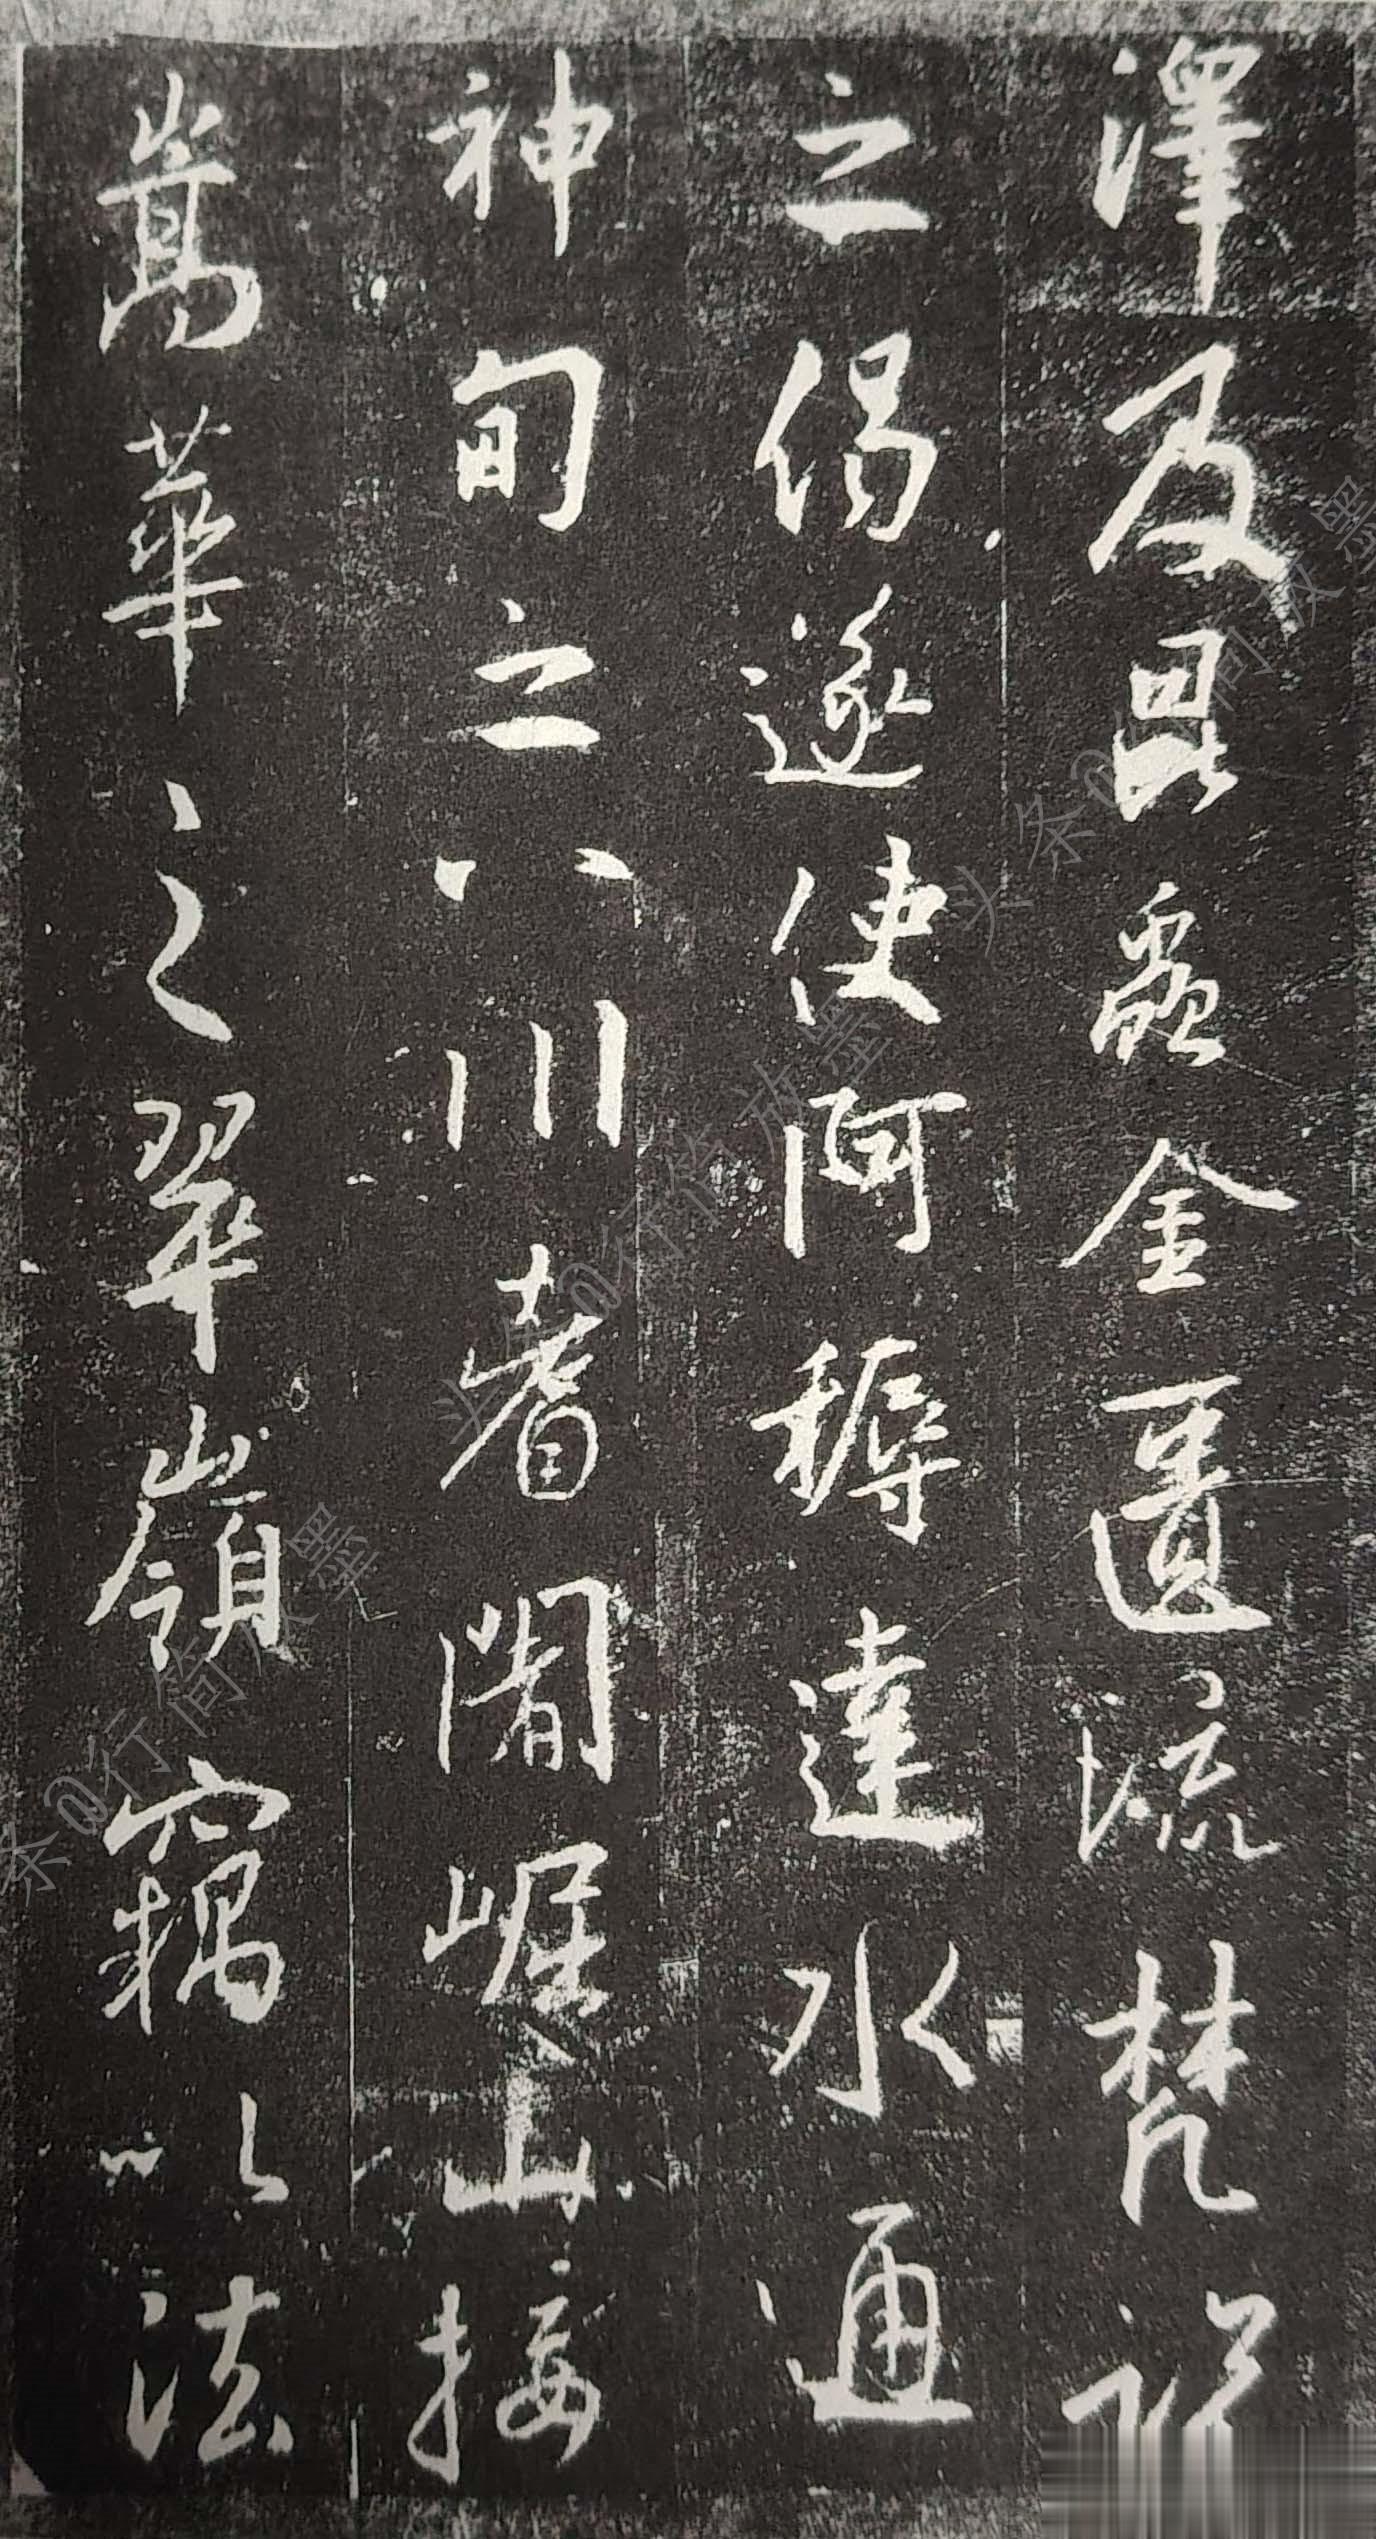 澤及昆蟲金匱流梵
之偈遂使阿耨達水通
神甸之八川耆闍崛山接
嵩華之翠嶺竊以法